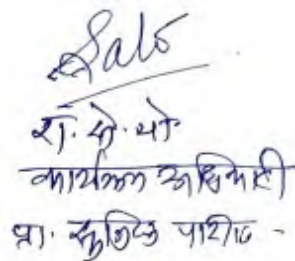 रा. से. यो.
कार्यक्रम अधिकारी
प्रा. सुजित पाटील -